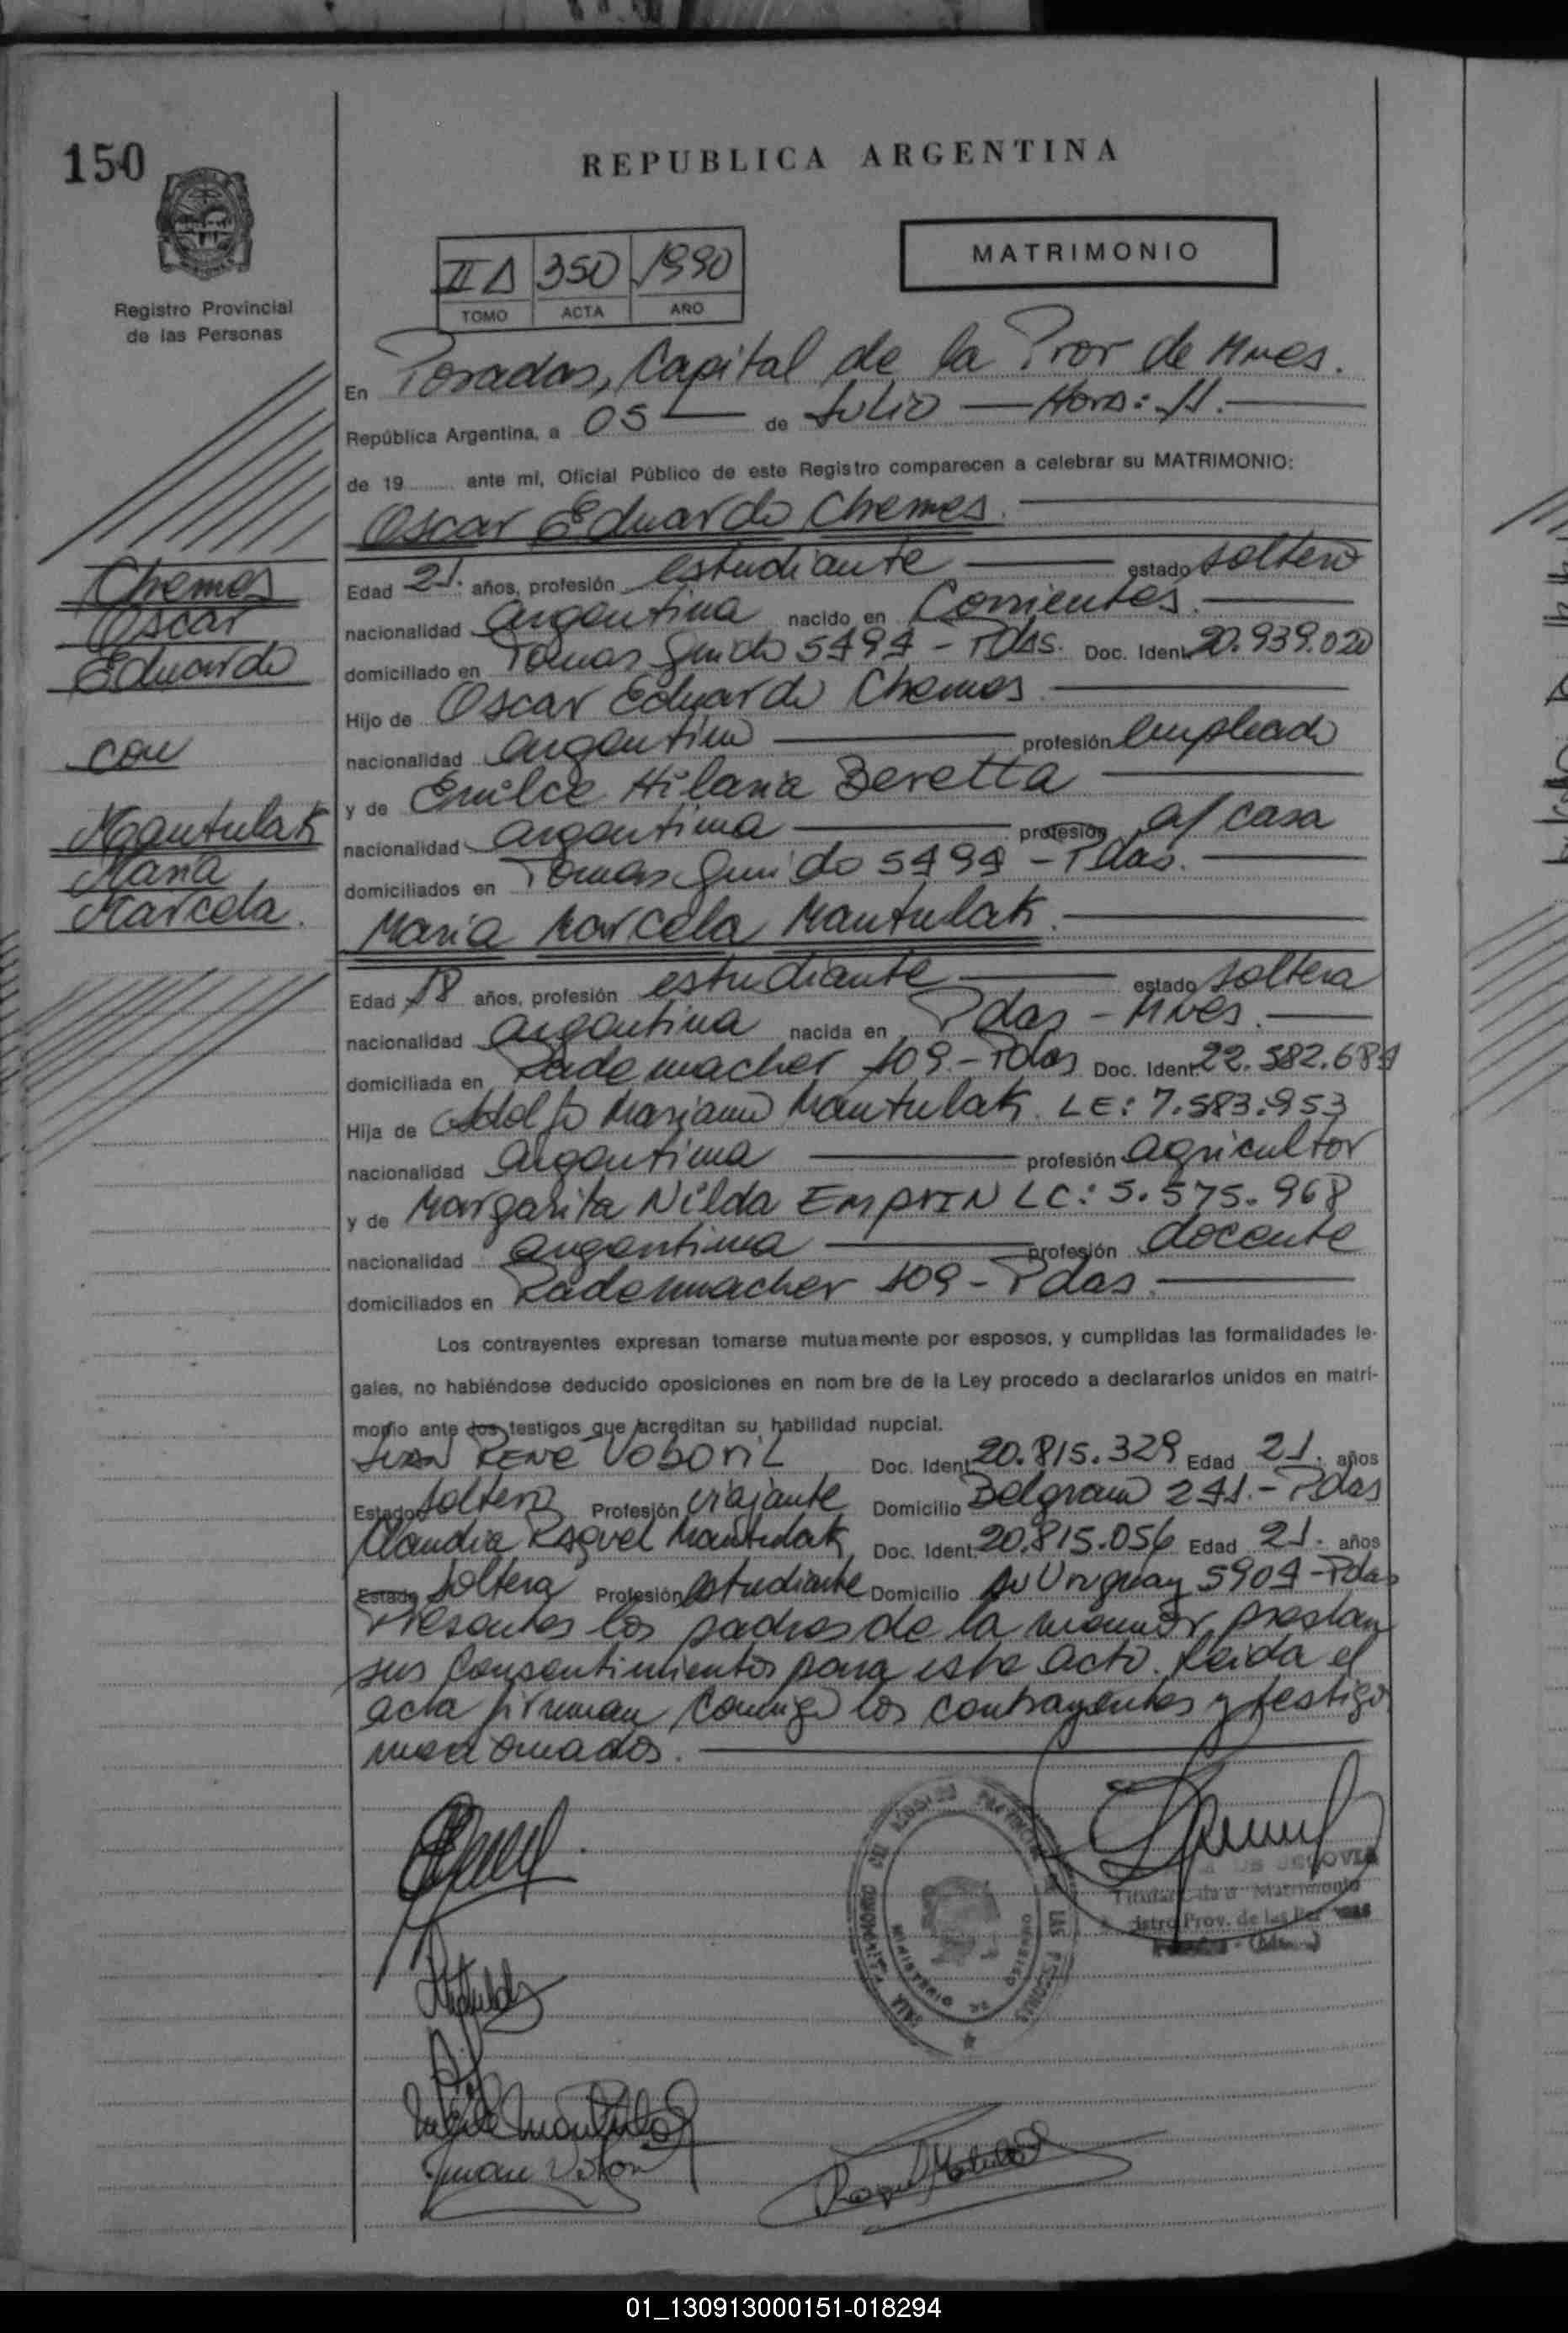 150
REPUBLICA ARGENTINA
MATRIMONIO
350 1990
TOMO ACTA AÑO
Registro Provincial
de las Personas
En Posadas, Capital de la Prov de Mnes.
República Argentina, a 05 de Julio Hora: 11.
de 19 ante mi, Oficial Público de este Registro comparecen a celebrar su MATRIMONIO:
Oscar Eduardo Chemes.
Chemes
Oscar
Eduardo
con
Mantulak
Maria
Marcela.
Edad 21. años, profesión estudiante estado soltero
nacionalidad argentina nacido en Corrientes.
domiciliado en Tomas Guido 5494 - Pdas. Doc. Ident. 20.939.020
Hijo de Oscar Eduardo Chemes
nacionalidad argentino profesión empleado
y de Emilce Hilaria Beretta
nacionalidad argentina profesión a/ casa
domiciliados en Tomas Guido 5494 - Pdas.
Maria Marcela Mantulak.
Edad 18 años, profesión estudiante estado soltera
nacionalidad argentina nacida en Pdas - Mnes.
domiciliada en Rademacher 109 - Pdas Doc. Ident. 22.582.684
Hija de Adolfo Mariano Mantulak LE: 7.583.953
nacionalidad argentina profesión agricultor
y de Margarita Nilda LC: 5.575.968
nacionalidad argentina profesión docente
domiciliados en Rademacher 109 - Pdas.
Los contrayentes expresan tomarse mutuamente por esposos, y cumplidas las formalidades le-
gales, no habiéndose deducido oposiciones en nom bre de la Ley procedo a declararlos unidos en matri-
monio ante dos testigos que acreditan su habilidad nupcial.
Juan Rene Voboril Doc. Ident. 20.815.329 Edad 21. años
Estado soltero Profesión viajante Domicilio Belgrano 241.- Pdas
Claudia Raquel Mantulak Doc. Ident. 20.815.056 Edad 21. años
Estado soltera Profesión estudiante Domicilio Av Uruguay 5904 - Pdas
Presentes los padres de la menor prestan
sus consentimientos para este acto. Leida el
acta firman conmigo los contrayentes y testigo
mencionados.
DE SEGOVIA
Titular Matrimonio
Prov. de las
MINISTERIO DE GOBIERNO
01_130913000151-018294